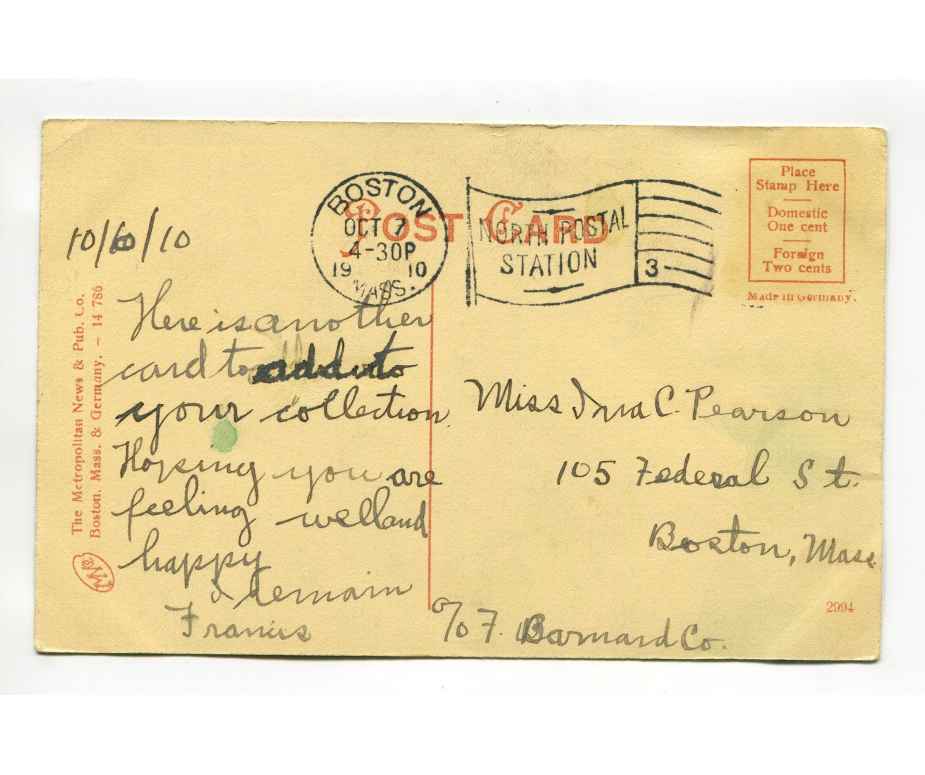 10/6/10
BOSTON
OCT 7
4-30P
19 10
MASS.
POST CARD
NORTH POSTAL
STATION
3
Place
Stamp Here
Domestic
One cent
Foreign
Two cents
Made in Germany.
Here is another
card to add to
your collection.
Hoping you are
feeling well and
happy
I remain
Francis
Miss Ina C. Pearson
105 Federal St.
Boston, Mass.
c/o F. Barnard Co.
The Metropolitan News & Pub. Co.
Boston, Mass. & Germany. - 14 786
2994